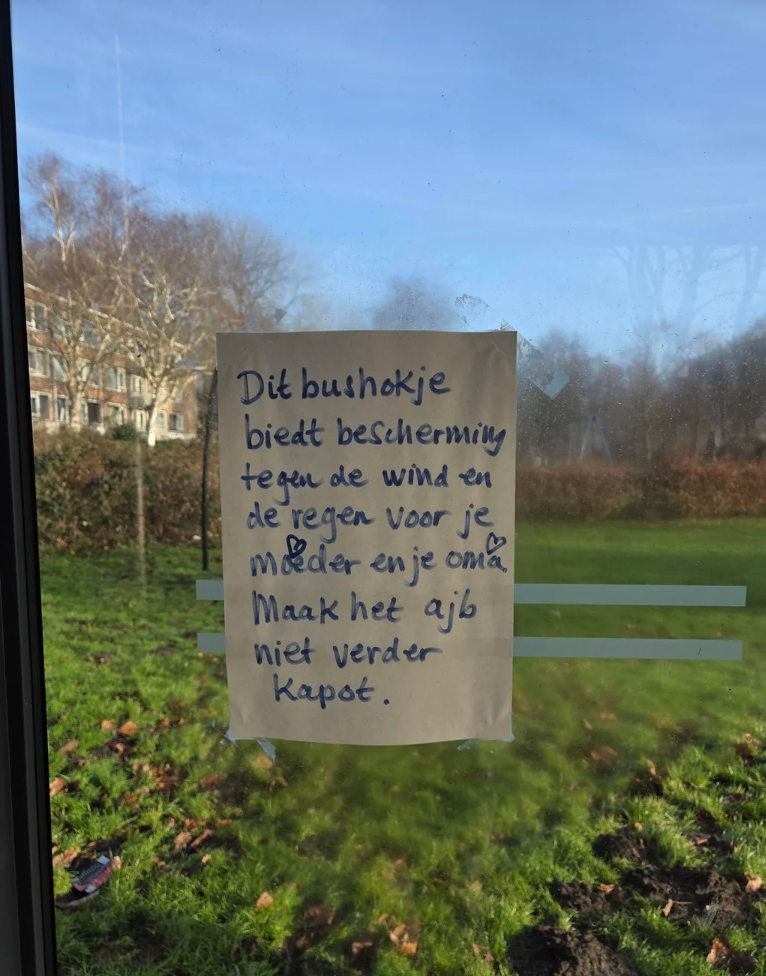 Dit bushokje
biedt bescherming
tegen de wind en
de regen voor je
moeder en je oma.
Maak het ajb
niet verder
kapot.